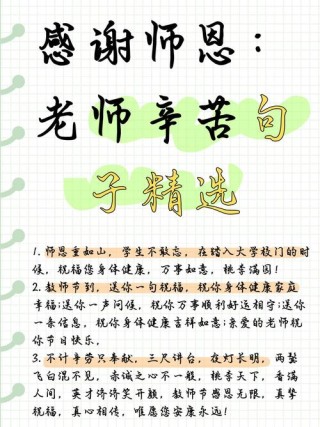 感谢师恩：
老师辛苦句
子精选
1.师恩重如山，学生不敢忘，在踏入大学校门的时
候，祝福您身体健康，万事如意，桃李满园！
2.教师节到，送你一句祝福，祝你身体健康家庭
幸福;送你一声问候，祝你万事顺利好运相守;送你
一条信息，祝你身体健康吉祥如意;亲爱的老师祝
你节日快乐，
3.不计辛劳只奉献，三尺讲台，夜灯长明，两鬓
飞白混不见，赤诚之心不一般，桃李天下，音满
人间，英才济济笑开颜，教师节感恩无限，真挚
祝福，真心相传，唯愿您安康永远！